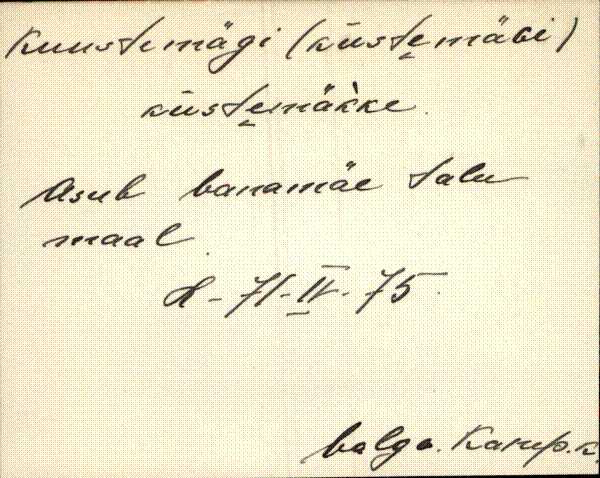 Kuustemägi (kūste̬mäGi)
kūste̬mäkke.
Asub Vanamäe talu
maal.
H-71-IV-75.
Valga. Karep.k.